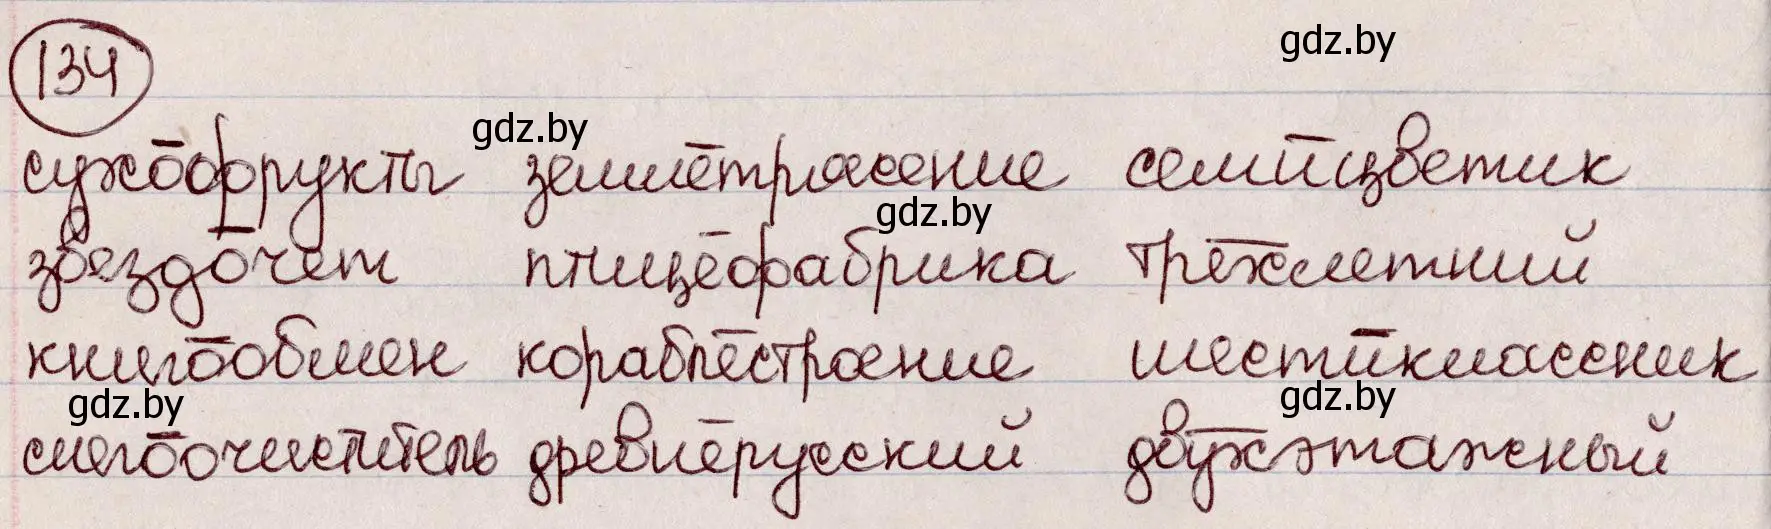 134
gdz.by
сухофрукты землетрясение семицветик
gdz.by
gdz.by
звездочет птицефабрика трехлетний
книгообмен кораблестроение шестиклассник
gdz.by
gdz.by
снегоочиститель древнерусский двухэтажный